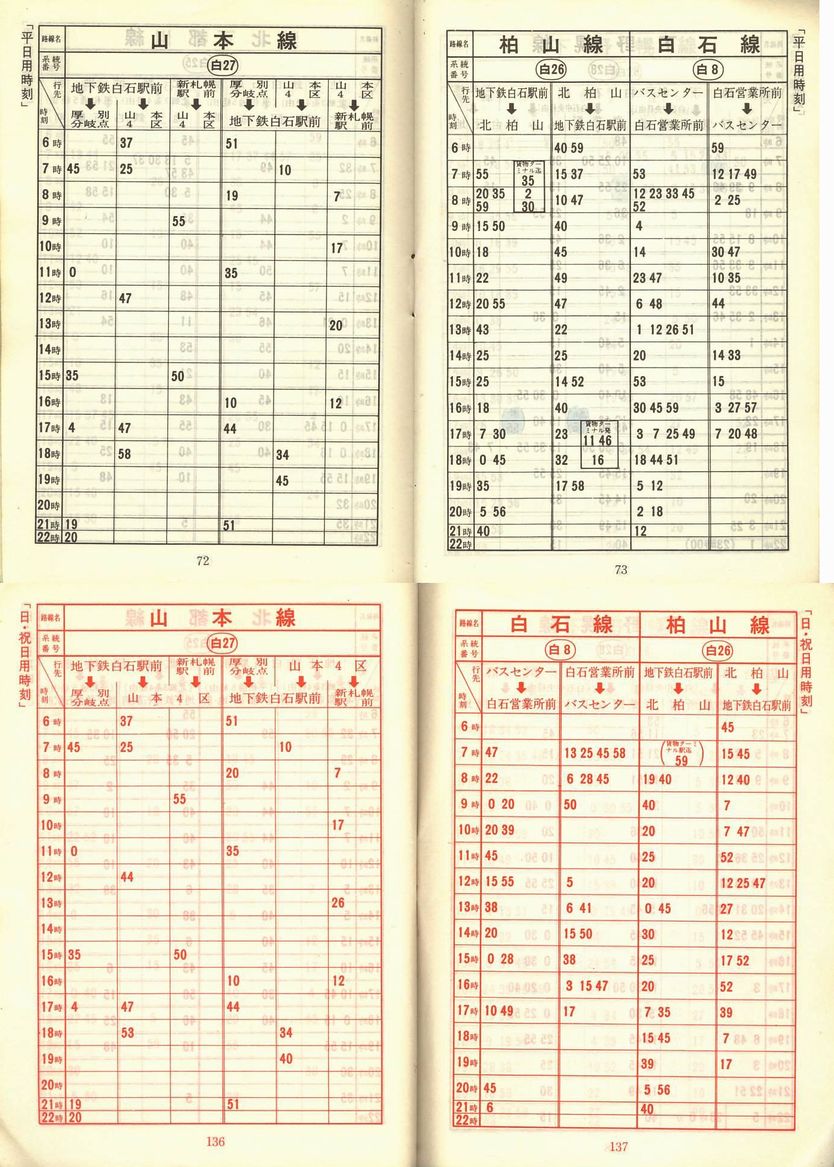 「平日用時刻」
路線名 山本線
系統番号 白27
行先 時刻 地下鉄白石駅前 新札幌駅前 厚別分岐点 山本4区 山本4区
厚別分岐点 山本4区 山本4区 地下鉄白石駅前 新札幌駅前
6時 37 51
7時 45 25 10
8時 19 7
9時 55
10時 17
11時 0 35
12時 47
13時 20
14時
15時 35 50
16時 10 12
17時 4 47 44
18時 58 34
19時 45
20時
21時 19 51
22時 20
72
「平日用時刻」
路線名 柏山線 白石線
系統番号 白26 白8
行先 時刻 地下鉄白石駅前 北柏山 バスセンター 白石営業所前
北柏山 地下鉄白石駅前 白石営業所前 バスセンター
6時 40 59 59
7時 55 貨物ターミナル迄 35 15 37 53 12 17 49
8時 20 35 59 2 30 10 47 12 23 33 45 52 2 25
9時 15 50 40 4
10時 18 45 14 30 47
11時 22 49 23 47 10 35
12時 20 55 47 6 48 44
13時 43 22 1 12 26 51
14時 25 25 20 14 33
15時 25 14 52 53 15
16時 18 40 30 45 59 3 27 57
17時 7 30 23 貨物ターミナル発 11 46 3 7 25 49 7 20 48
18時 0 45 32 16 18 44 51
19時 35 17 58 5 12
20時 5 56 2 18
21時 40 12
22時
73
「日・祝日用時刻」
路線名 山本線
系統番号 白27
行先 時刻 地下鉄白石駅前 新札幌駅前 厚別分岐点 山本4区
厚別分岐点 山本4区 地下鉄白石駅前 新札幌駅前
6時 37 51
7時 45 25 10
8時 20 7
9時 55
10時 17
11時 0 35
12時 44
13時 26
14時
15時 35 50
16時 10 12
17時 4 47 44
18時 53 34
19時 40
20時
21時 19 51
22時 20
136
「日・祝日用時刻」
路線名 白石線 柏山線
系統番号 白8 白26
行先 時刻 バスセンター 白石営業所前 地下鉄白石駅前 北柏山
白石営業所前 バスセンター 北柏山 地下鉄白石駅前
6時 45
7時 47 13 25 45 58 (貨物ターミナル駅迄 59) 15 45
8時 22 6 28 45 19 40 12 40
9時 0 20 50 40 7
10時 20 39 20 7 47
11時 45 25 52
12時 15 55 5 20 12 25 47
13時 38 6 41 0 45 27
14時 20 15 50 30 12
15時 0 28 38 25 17 52
16時 3 15 47 20 52
17時 10 49 17 7 35 39
18時 15 45 7
19時 39 17
20時 45 5 56
21時 6 40
22時
137